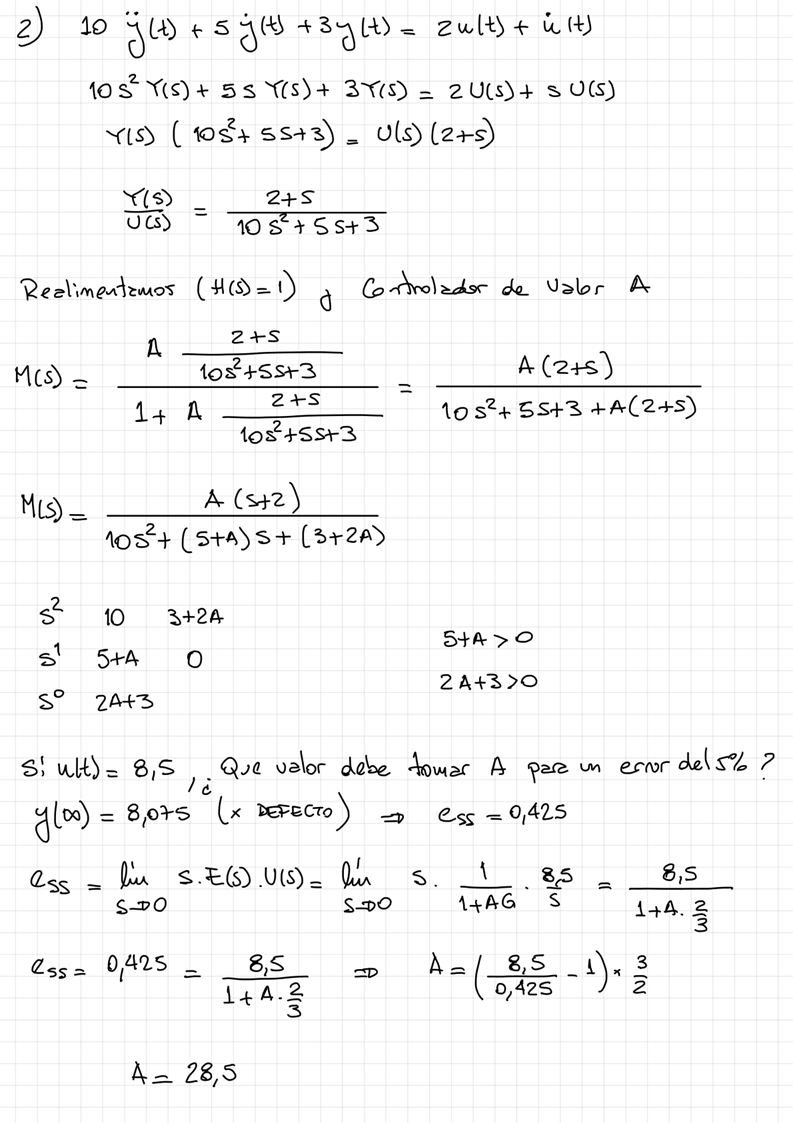 2) 10 ÿ(t) + 5 ẏ(t) + 3y(t) = 2u(t) + u̇(t)
10s² Y(s) + 5s Y(s) + 3Y(s) = 2U(s) + s U(s)
Y(s) (10s² + 5s+3) = U(s) (2+s)
Y(s)/U(s) = (2+s)/(10s² + 5s+3)
Realimentamos (H(s)=1) y Controlador de valor A
M(s) = (A (2+s)/(10s²+5s+3))/(1 + A (2+s)/(10s²+5s+3)) = A(2+s)/(10s²+5s+3+A(2+s))
M(s) = A(s+2)/(10s²+(5+A)s+(3+2A))
s² 10 3+2A
5+A > 0
s¹ 5+A 0
2A+3 >0
s⁰ 2A+3
Si u(t) = 8,5, ¿Que valor debe tomar A para un error del 5% ?
y(∞) = 8,075 (x DEFECTO) ⇒ ess = 0,425
ess = lím s→0 s.E(s).U(s) = lím s→0 s. 1/(1+AG) . 8,5/s = 8,5/(1+A. 2/3)
ess = 0,425 = 8,5/(1+A. 2/3) ⇒ A = (8,5/0,425 - 1) * 3/2
A = 28,5